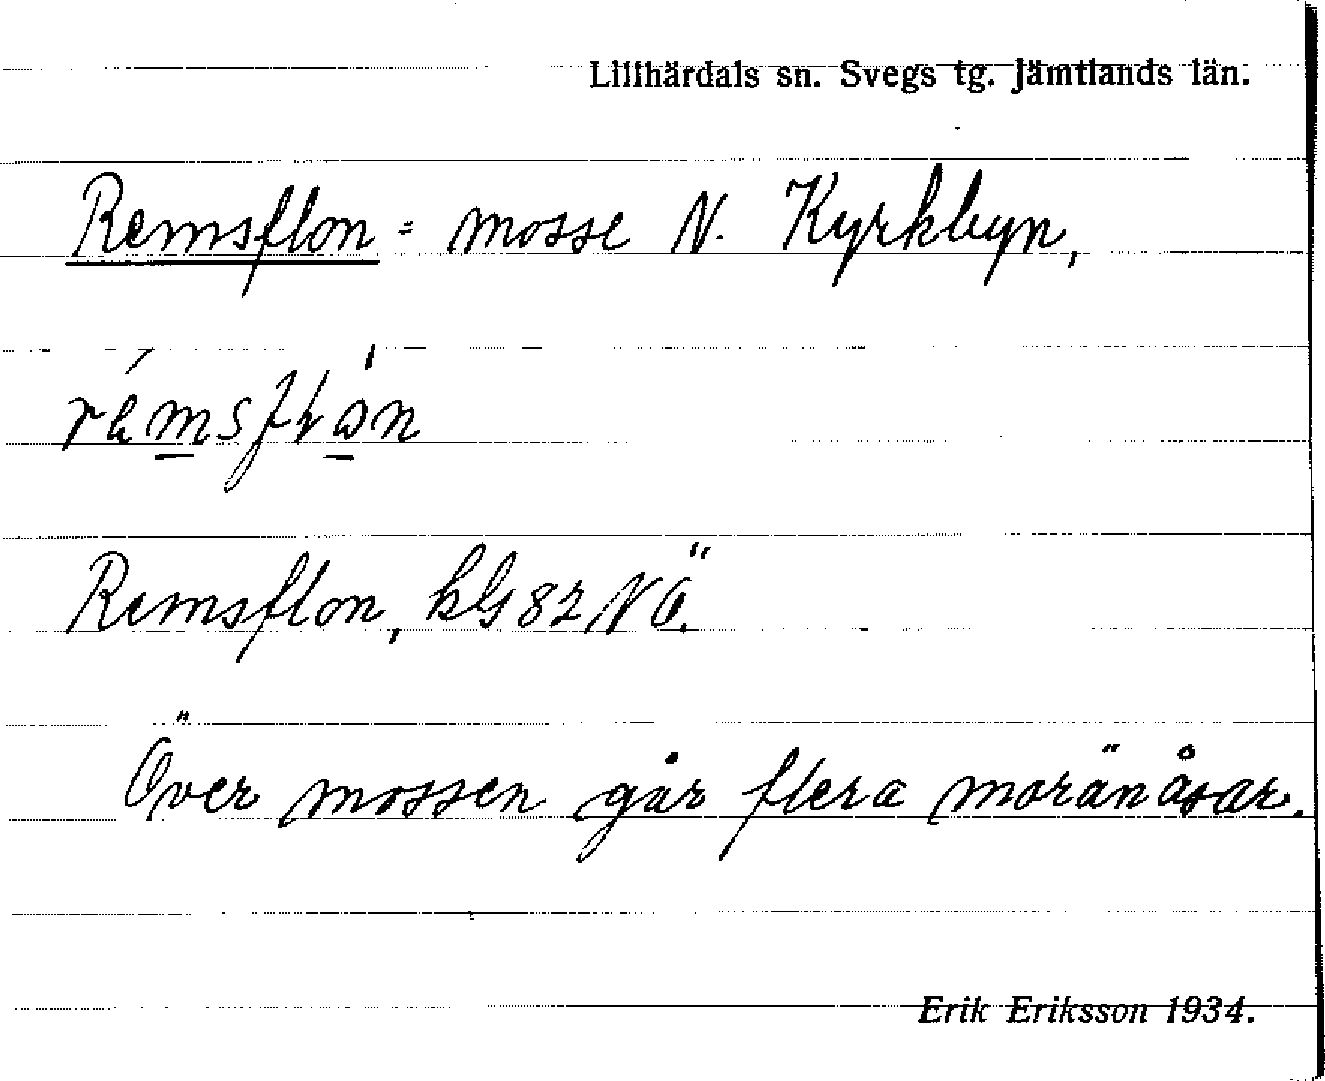 Lillhärdals sn. Svegs tg. Jämtlands län.
Remsflon = mosse N. Kyrkbyn,
Remsflon, kbl 82 NÖ.
Över mossen går flera moränåsar.
Erik Eriksson 1934.